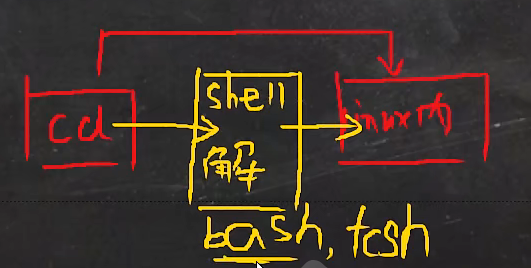 cd
shell
解
linux内
bash, tcsh